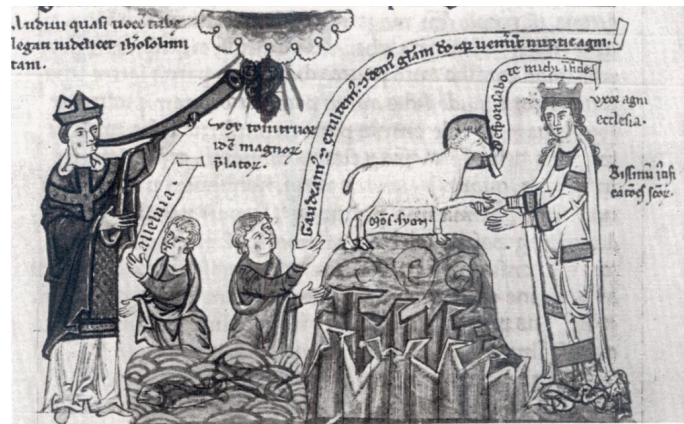 Audiui quasi uocē tube
legati uidelicet ihosolimi
tani.
uox tonitruoꝝ
idē magnoꝝ
p̄latoꝝ.
alleluia.
Gaudeamꝰ ⁊ exultemꝰ ⁊ demꝰ głam do. qꝛ uener̄t nuptie agni.
desponsabo te michi in fide
mōs syon
uxor agni
ecclesia.
Bissinū iusti
scōꝝ.